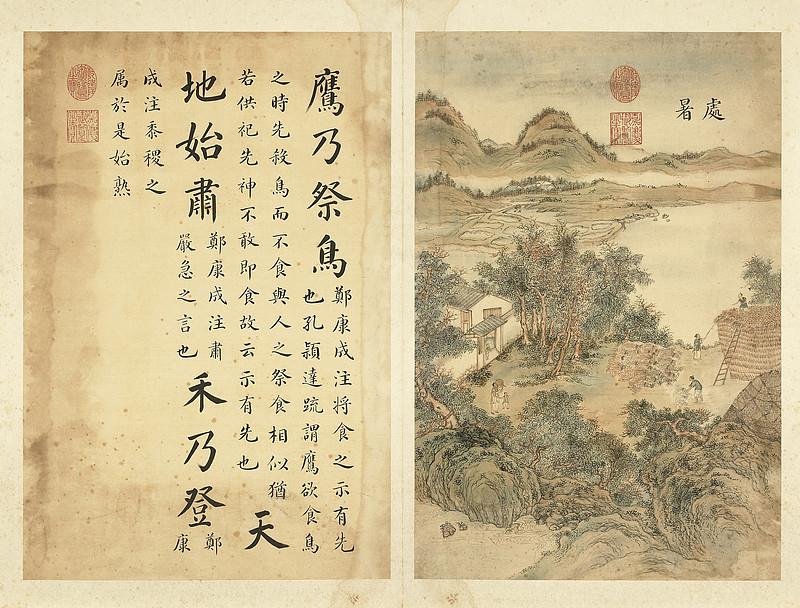 處暑
鷹乃祭鳥
鄭康成注將食之示有先
也孔穎達疏謂鷹欲食鳥
之時先殺鳥而不食與人之祭食相似猶
若供祀先神不敢即食故云示有先也
天
地始肅
鄭康成注肅
嚴急之言也
禾乃登
鄭
康
成注黍稷之
属於是始熟